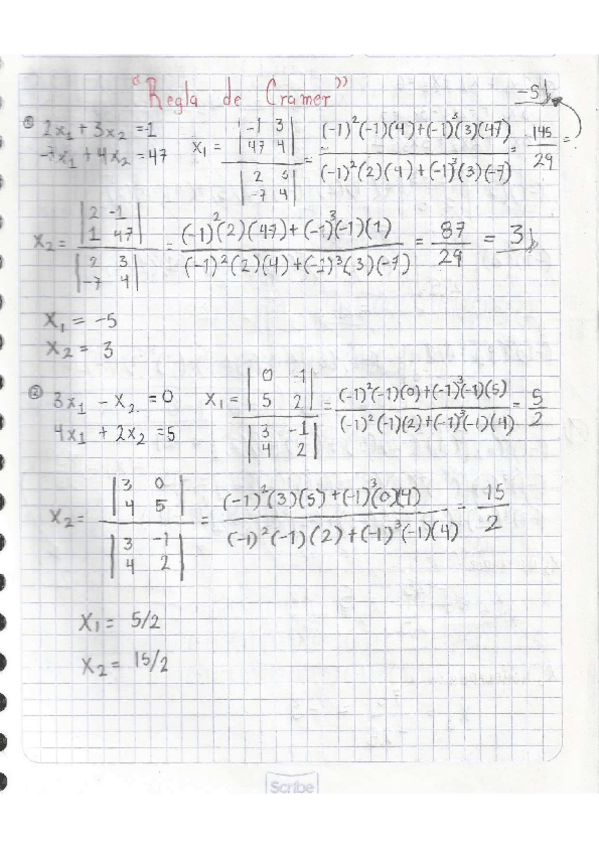 "Regla de Cramer"
① 2x₁ + 3x₂ = 1
-7x₁ + 4x₂ = 47
x₁ = |-1 3; 47 4| / |2 3; -7 4| = (-1)²(-1)(4)+(-1)³(3)(47) / (-1)²(2)(4)+(-1)³(3)(-7) = 145/29 = -5
x₂ = |2 -1; 1 47| / |2 3; -7 4| = (-1)²(2)(47)+(-1)³(-1)(1) / (-1)²(2)(4)+(-1)³(3)(-7) = 87/29 = 3
x₁ = -5
x₂ = 3
② 3x₁ - x₂ = 0
4x₁ + 2x₂ = 5
x₁ = |0 -1; 5 2| / |3 -1; 4 2| = (-1)²(-1)(0)+(-1)³(-1)(5) / (-1)²(-1)(2)+(-1)³(-1)(4) = 5/2
x₂ = |3 0; 4 5| / |3 -1; 4 2| = (-1)²(3)(5)+(-1)³(0)(4) / (-1)²(-1)(2)+(-1)³(-1)(4) = 15/2
x₁ = 5/2
x₂ = 15/2
Scribe